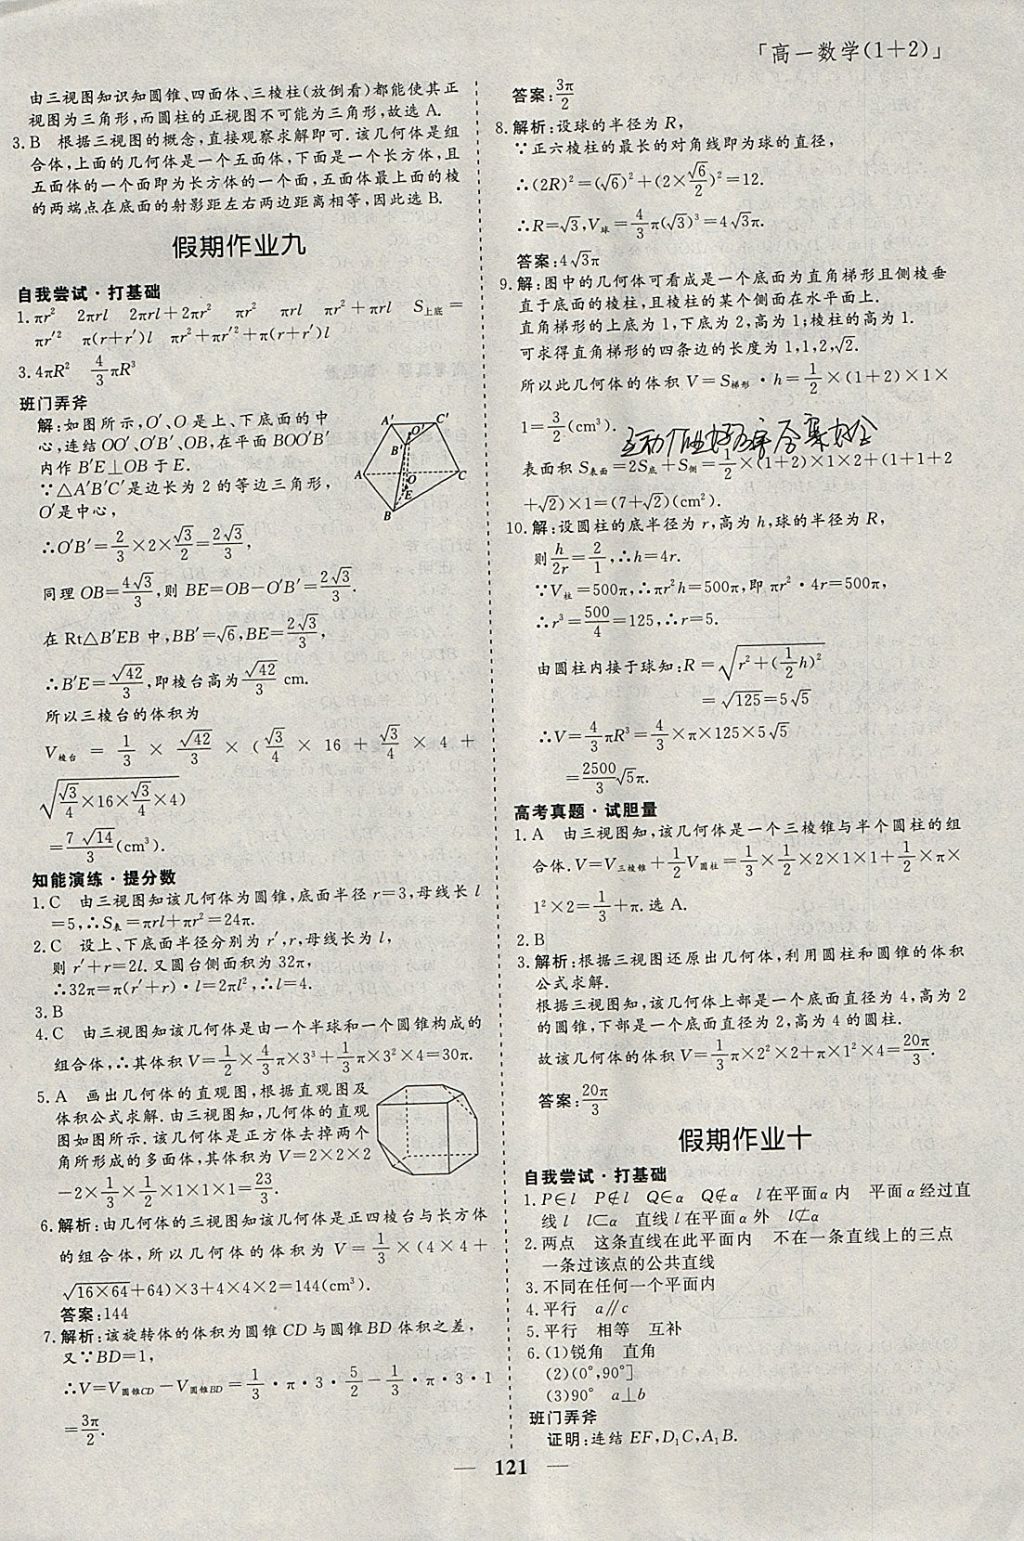 「高一数学(1+2)」
由三视图知识知圆锥、四面体、三棱柱(放倒看)都能使其正
视图为三角形,而圆柱的正视图不可能为三角形,故选 A.
3.B 根据三视图的概念,直接观察求解即可.该几何体是组
合体,上面的几何体是一个五面体,下面是一个长方体,且
五面体的一个面即为长方体的一个面,五面体最上面的棱
的两端点在底面的射影距左右两边距离相等,因此选 B.
假期作业九
自我尝试·打基础
1.πr² 2πrl 2πrl+2πr² πr² πrl πr²+πrl S上底=
πr′² π(r+r′)l πr²+πr′²+π(r+r′)l
3.4πR² 4/3 πR³
班门弄斧
解:如图所示,O′、O 是上、下底面的中
心,连结 OO′、O′B′、OB,在平面 BOO′B′
内作 B′E⊥OB 于 E.
∵△A′B′C′是边长为 2 的等边三角形,
O′是中心,
∴O′B′=2/3×2×√3/2=2√3/3,
同理 OB=4√3/3,则 BE=OB-O′B′=2√3/3.
在 Rt△B′EB 中,BB′=√6,BE=2√3/3,
∴B′E=√42/3,即棱台高为√42/3 cm.
所以三棱台的体积为
V棱台 = 1/3 × √42/3 × (√3/4 × 16 + √3/4 × 4 +
√(√3/4×16×√3/4×4))
=7√14/3(cm³).
A′ C′ O′ B′ A O C E B
知能演练·提分数
1.C 由三视图知该几何体为圆锥,底面半径 r=3,母线长 l
=5,∴S表=πrl+πr²=24π.
2.C 设上、下底面半径分别为 r′,r,母线长为 l,
则 r′+r=2l.又圆台侧面积为 32π,
∴32π=π(r′+r)·l=2πl²,∴l=4.
3.B
4.C 由三视图知该几何体是由一个半球和一个圆锥构成的
组合体,∴其体积 V=1/2×4/3π×3³+1/3π×3²×4=30π.
5.A 画出几何体的直观图,根据直观图及
体积公式求解.由三视图知,几何体的直观
图如图所示.该几何体是正方体去掉两个
角所形成的多面体,其体积为 V=2×2×2
-2×1/3×1/2×1×1×1=23/3.
6.解析:由几何体的三视图知该几何体是正四棱台与长方体
的组合体,所以几何体的体积为 V=1/3×(4×4+
√(16×64)+64)×3+4×4×2=144(cm³).
答案:144
7.解析:该旋转体的体积为圆锥 CD 与圆锥 BD 体积之差,
又∵BD=1,
∴V=V圆锥CD-V圆锥BD=1/3·π·3·5/2-1/3·π·3·1
=3π/2.
答案:3π/2
8.解析:设球的半径为 R,
∵正六棱柱的最长的对角线即为球的直径,
∴(2R)²=(√6)²+(2×√6/2)²=12.
∴R=√3,V球=4/3π(√3)³=4√3π.
答案:4√3π
9.解:图中的几何体可看成是一个底面为直角梯形且侧棱垂
直于底面的棱柱,且棱柱的某个侧面在水平面上.
直角梯形的上底为 1,下底为 2,高为 1;棱柱的高为 1.
可求得直角梯形的四条边的长度为 1,1,2,√2.
所以此几何体的体积 V=S梯形·h=1/2×(1+2)×1×
1=3/2(cm³).
表面积 S表面=2S底+S侧=1/2×(1+2)×1×2+(1+1+2
+√2)×1=(7+√2)(cm²).
10.解:设圆柱的底半径为 r,高为 h,球的半径为 R,
则h/2r=2/1,∴h=4r.
∵V柱=500π,∴πr²h=500π,即 πr²·4r=500π,
∴r³=500/4=125,∴r=5.
由圆柱内接于球知:R=√(r²+(1/2h)²)
=√125=5√5
∴V=4/3πR³=4/3×π×125×5√5
=2500/3√5π.
高考真题·试胆量
1.A 由三视图知,该几何体是一个三棱锥与半个圆柱的组
合体.V=V三棱锥+1/2V圆柱=1/3×1/2×2×1×1+1/2π×
1²×2=1/3+π.选 A.
2.B
3.解析:根据三视图还原出几何体,利用圆柱和圆锥的体积
公式求解.
根据三视图知,该几何体上部是一个底面直径为 4,高为 2
的圆锥,下部是一个底面直径为 2,高为 4 的圆柱.
故该几何体的体积 V=1/3π×2²×2+π×1²×4=20π/3.
答案:20π/3
假期作业十
自我尝试·打基础
1.P∈l P∉l Q∈α Q∉α l 在平面 α 内 平面 α 经过直
线 l l⊂α 直线 l 在平面 α 外 l⊄α
2.两点 这条直线在此平面内 不在一条直线上的三点
一条过该点的公共直线
3.不同在任何一个平面内
4.平行 a∥c
5.平行 相等 互补
6.(1)锐角 直角
(2)(0°,90°]
(3)90° a⊥b
班门弄斧
证明:连结 EF,D₁C,A₁B.
— 121 —